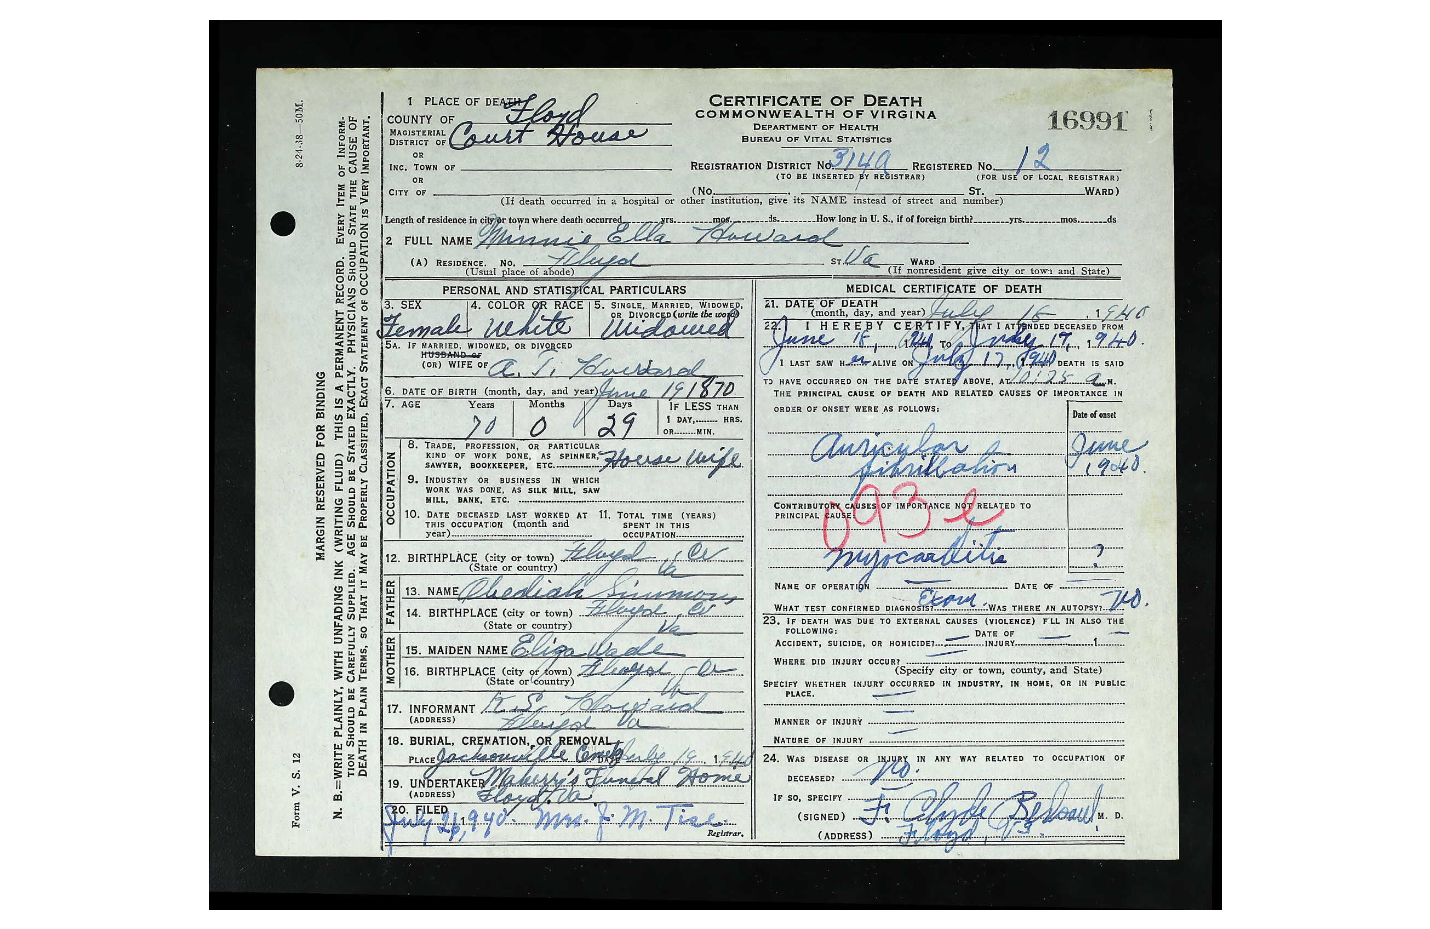 8-24-38—50M.
MARGIN RESERVED FOR BINDING
N. B.—WRITE PLAINLY, WITH UNFADING INK (WRITING FLUID) THIS IS A PERMANENT RECORD. EVERY ITEM OF INFORM-
TION SHOULD BE CAREFULLY SUPPLIED. AGE SHOULD BE STATED EXACTLY. PHYSICIANS SHOULD STATE THE CAUSE OF
DEATH IN PLAIN TERMS, SO THAT IT MAY BE PROPERLY CLASSIFIED, EXACT STATEMENT OF OCCUPATION IS VERY IMPORTANT.
Form V. S. 12
1 PLACE OF DEATH
COUNTY OF Floyd
MAGISTERIAL
DISTRICT OF Court House
OR
INC. TOWN OF
OR
CITY OF
CERTIFICATE OF DEATH
COMMONWEALTH OF VIRGINIA
DEPARTMENT OF HEALTH
BUREAU OF VITAL STATISTICS
16991
REGISTRATION DISTRICT No. 314a REGISTERED No. 12
(TO BE INSERTED BY REGISTRAR) (FOR USE OF LOCAL REGISTRAR)
(No. ST. WARD)
(If death occurred in a hospital or other institution, give its NAME instead of street and number)
Length of residence in city or town where death occurred yrs. mos. ds. How long in U. S., if of foreign birth? yrs. mos. ds
2 FULL NAME Minnie Ella Howard
(A) RESIDENCE. No. Floyd ST. Va WARD
(Usual place of abode) (If nonresident give city or town and State)
PERSONAL AND STATISTICAL PARTICULARS
3. SEX 4. COLOR OR RACE 5. SINGLE, MARRIED, WIDOWED,
OR DIVORCED (write the word)
Female White Widowed
5A. IF MARRIED, WIDOWED, OR DIVORCED
HUSBAND OF
(OR) WIFE OF A. T. Howard
6. DATE OF BIRTH (month, day, and year) June 19 1870
7. AGE Years Months Days IF LESS THAN
1 DAY, HRS.
OR MIN.
70 0 29
OCCUPATION
8. TRADE, PROFESSION, OR PARTICULAR
KIND OF WORK DONE, AS SPINNER,
SAWYER, BOOKKEEPER, ETC. House Wife
9. INDUSTRY OR BUSINESS IN WHICH
WORK WAS DONE, AS SILK MILL, SAW
MILL, BANK, ETC.
10. DATE DECEASED LAST WORKED AT
THIS OCCUPATION (month and
year)
11. TOTAL TIME (YEARS)
SPENT IN THIS
OCCUPATION
12. BIRTHPLACE (city or town) Floyd Co
(State or country) Va
FATHER
13. NAME Obediah Simmons
14. BIRTHPLACE (city or town) Floyd Co
(State or country) Va
MOTHER
15. MAIDEN NAME Eliza Wade
16. BIRTHPLACE (city or town) Floyd Co
(State or country) Va
17. INFORMANT K. S. Howard
(ADDRESS) Floyd Va
18. BURIAL, CREMATION, OR REMOVAL
PLACE Jacksonville Cem DATE July 19, 1940
19. UNDERTAKER Maberry's Funeral Home
(ADDRESS) Floyd, Va
20. FILED
July 26, 1940. Mrs. J. M. Tise.
Registrar.
MEDICAL CERTIFICATE OF DEATH
21. DATE OF DEATH
(month, day, and year) July 18, 1940
22. I HEREBY CERTIFY, THAT I ATTENDED DECEASED FROM
June 18, TO July 17, 1940.
I LAST SAW HER ALIVE ON July 17, 1940 DEATH IS SAID
TO HAVE OCCURRED ON THE DATE STATED ABOVE, AT a M.
THE PRINCIPAL CAUSE OF DEATH AND RELATED CAUSES OF IMPORTANCE IN
ORDER OF ONSET WERE AS FOLLOWS: Date of onset
Auricular June
fibrillation 1940.
CONTRIBUTORY CAUSES OF IMPORTANCE NOT RELATED TO
PRINCIPAL CAUSE:
093 e
myocarditis ?
NAME OF OPERATION DATE OF
WHAT TEST CONFIRMED DIAGNOSIS? Exam. WAS THERE AN AUTOPSY? No.
23. IF DEATH WAS DUE TO EXTERNAL CAUSES (VIOLENCE) FILL IN ALSO THE
FOLLOWING:
ACCIDENT, SUICIDE, OR HOMICIDE? DATE OF INJURY 1
WHERE DID INJURY OCCUR?
(Specify city or town, county, and State)
SPECIFY WHETHER INJURY OCCURRED IN INDUSTRY, IN HOME, OR IN PUBLIC
PLACE.
MANNER OF INJURY
NATURE OF INJURY
24. WAS DISEASE OR INJURY IN ANY WAY RELATED TO OCCUPATION OF
DECEASED? No.
IF SO, SPECIFY
(SIGNED) F. Clyde M. D.
(ADDRESS) Floyd, Va.